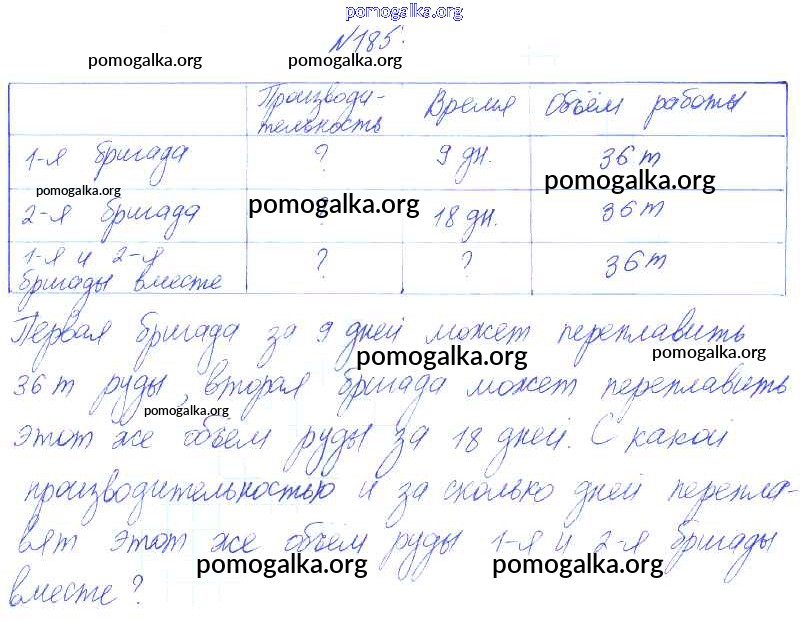 pomogalka.org
№185.
pomogalka.org pomogalka.org
Производи-
тельность Время Объём работы
1-я бригада ? 9 дн. 36 т
pomogalka.org
pomogalka.org
2-я бригада pomogalka.org 18 дн. 36 т
1-я и 2-я
бригады вместе ? ? 36 т
Первая бригада за 9 дней может переплавить
pomogalka.org pomogalka.org
36 т руды, вторая бригада может переплавить
pomogalka.org
этот же объём руды за 18 дней. С какой
производительностью и за сколько дней перепла-
вят этот же объём руды 1-я и 2-я бригады
pomogalka.org pomogalka.org
вместе?